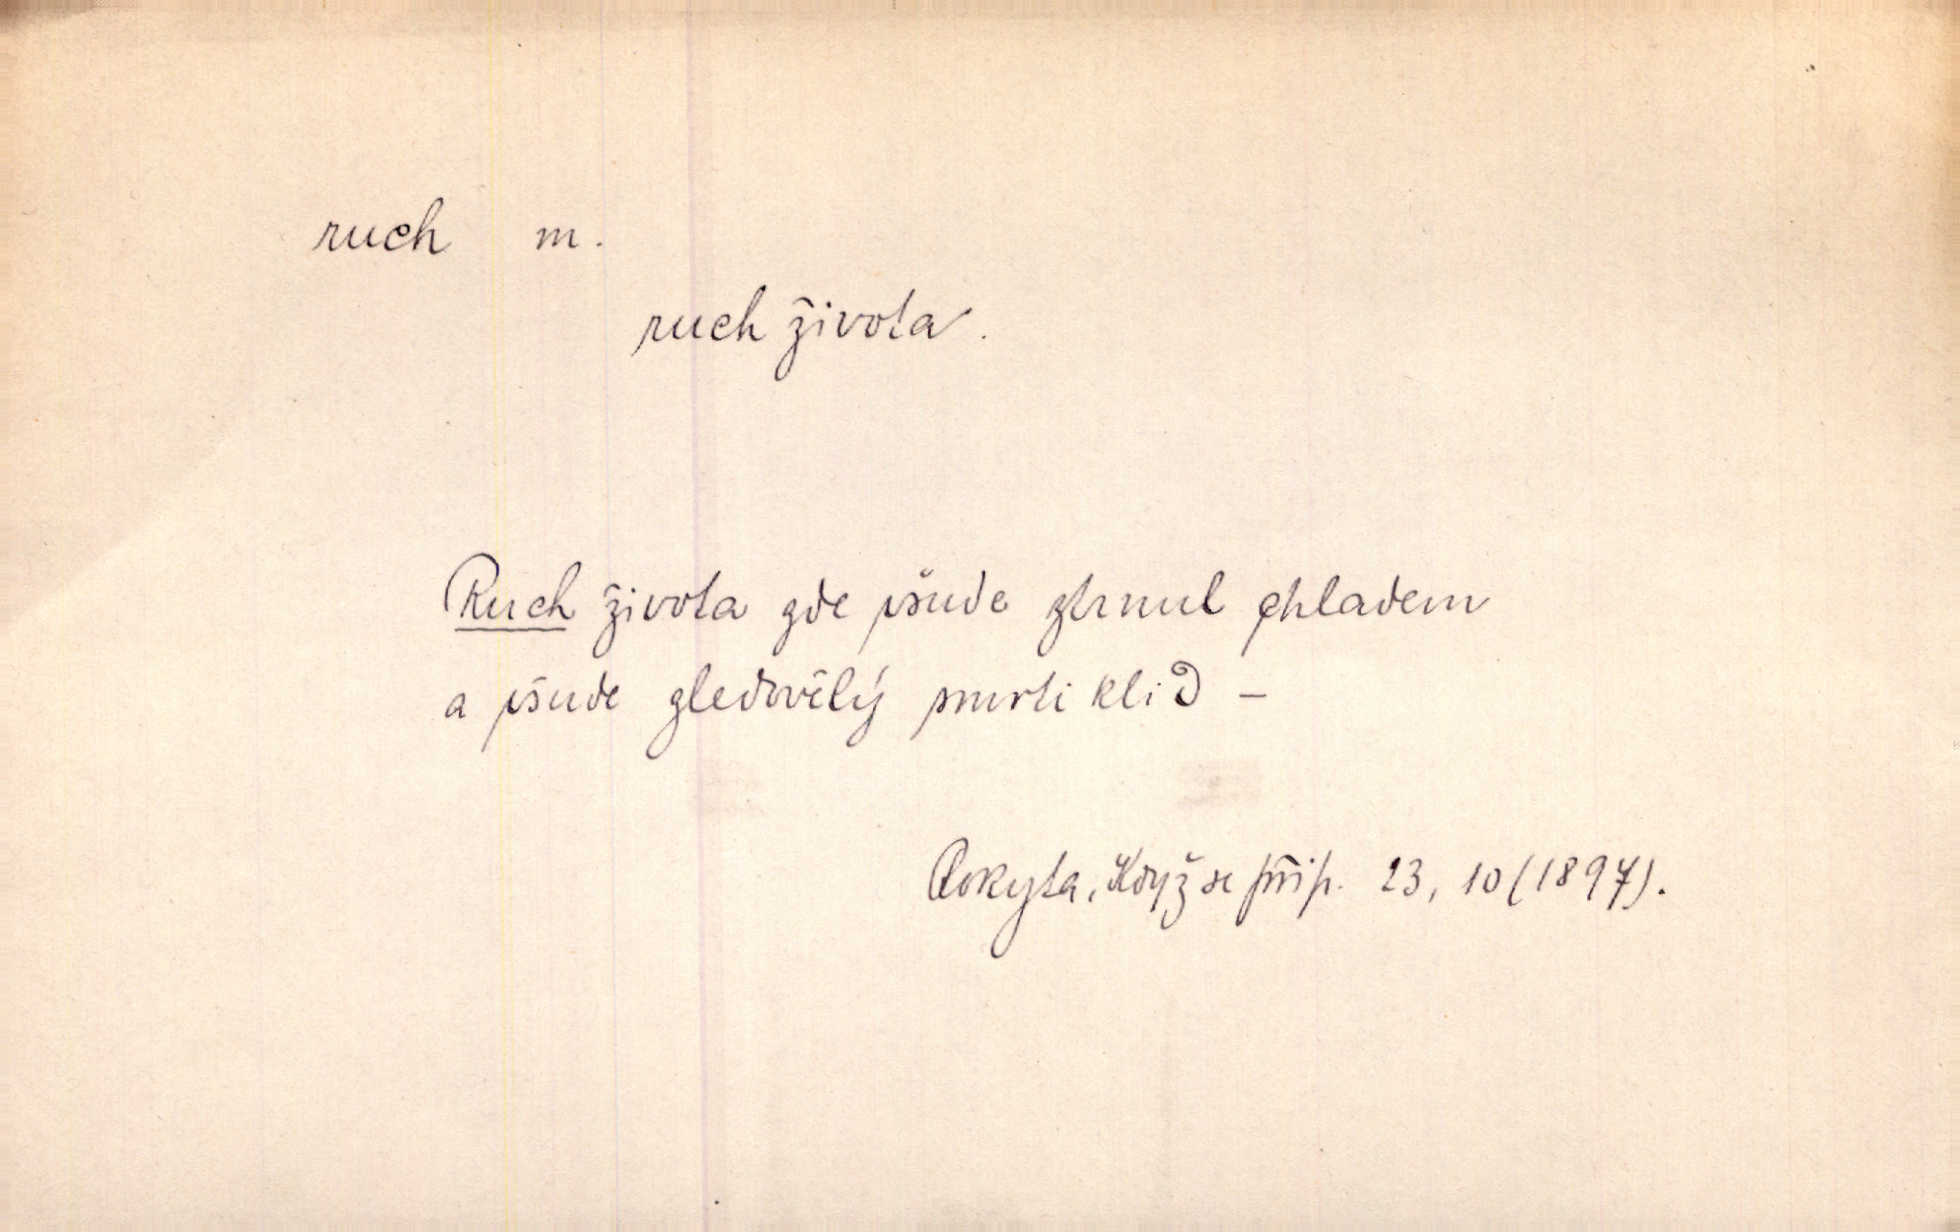 ruch m.
ruch života.
Ruch života zde všude ztrnul chladem
a všude zledovělý smrti klid –
Rokyta, Když se přip. 23, 10 (1897).